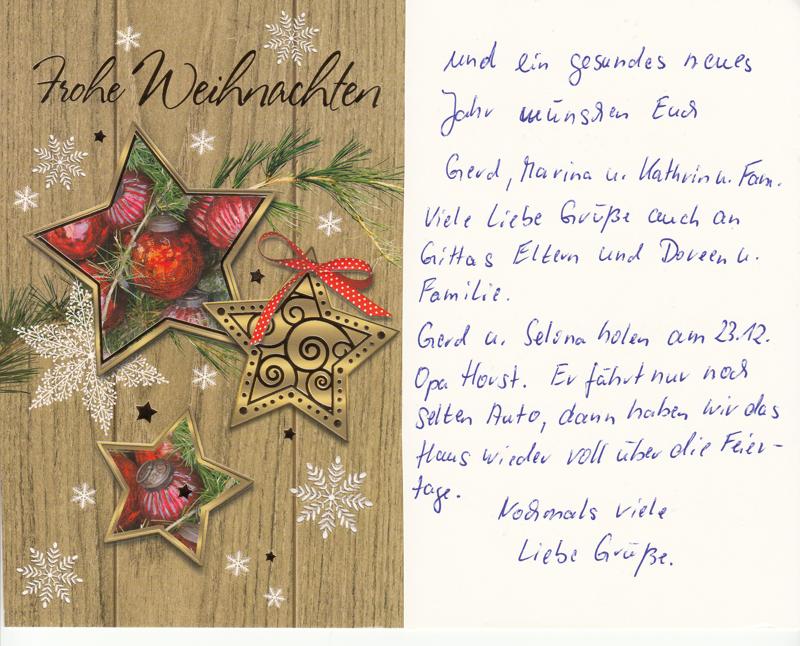 Frohe Weihnachten
und ein gesundes neues
Jahr wünschen Euch
Gerd, Marina u. Kathrin u. Fam.
Viele Liebe Grüße auch an
Gittas Eltern und Doreen u.
Familie.
Gerd u. Selina holen am 23.12.
Opa Horst. Er fährt nur noch
selten Auto, dann haben wir das
Haus wieder voll über die Feier-
tage.
Nochmals viele
Liebe Grüße.